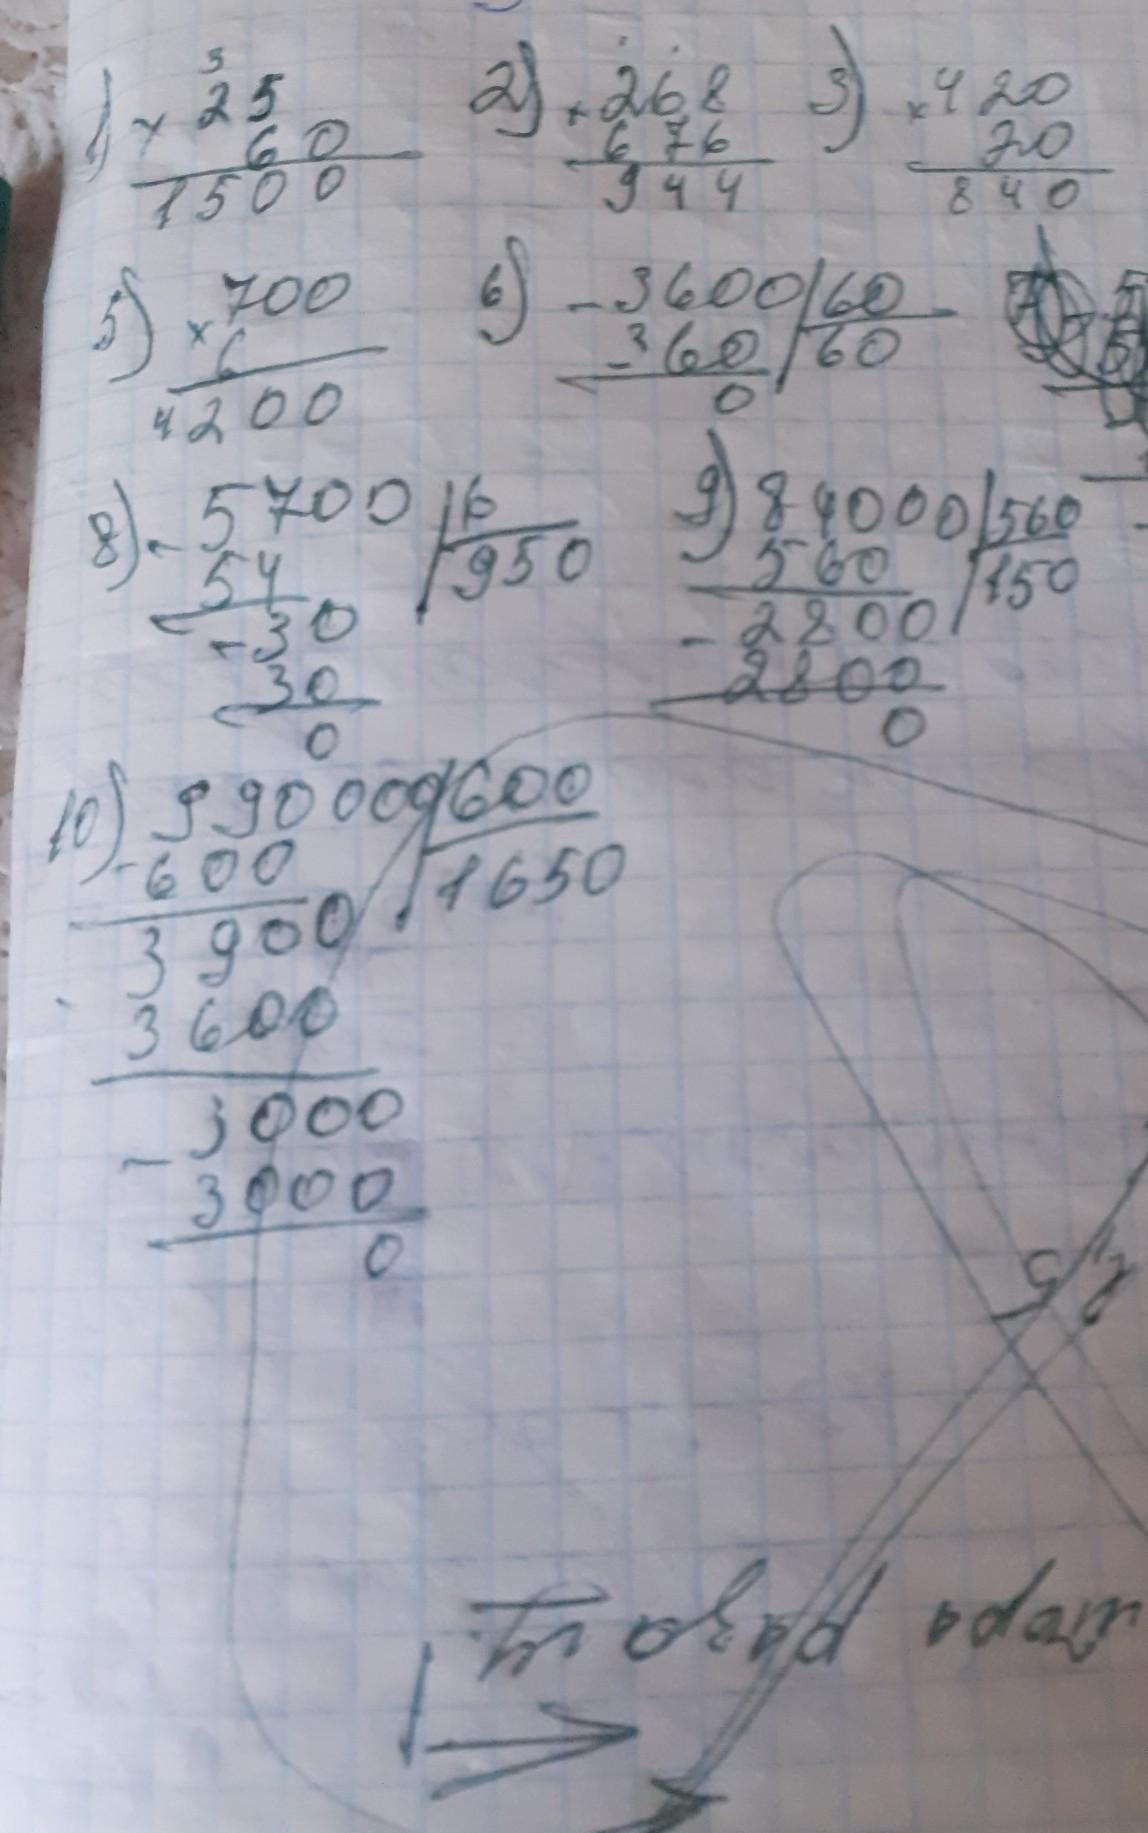 3
1) × 25 2) × 268 3) × 420
60 676 20
1500 944 840
5) × 700 6) - 3600 | 60
6 - 360 | 60
4200 0
8) - 5700 | 6 9) 84000 | 560
54 | 950 560 | 150
- 30 - 2800
30 2800
0 0
10) 990000 | 600
- 600 | 1650
3900
3600
3000
- 3000
0